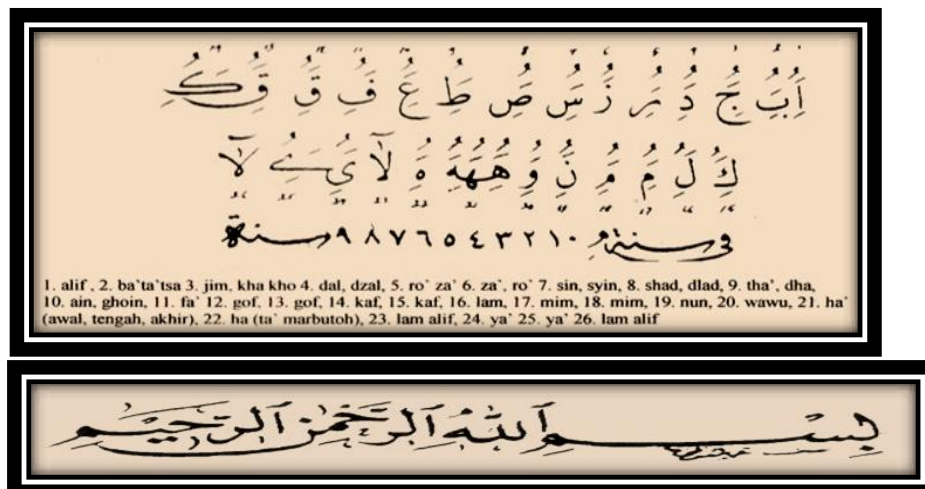 اَ بِ جِ دِ رِ زِ سِ صِ طِ عِ فِ قِ قِ كِ
كِ لِ مِ مِ نِ وِ هههِ هِ لاٰ يِ ے لاٰ
في سنة ٠ ١ ٢ ٣ ٤ ٥ ٦ ٧ ٨ ٩ سنة
1. alif , 2. ba`ta`tsa 3. jim, kha kho 4. dal, dzal, 5. ro` za` 6. za`, ro` 7. sin, syin, 8. shad, dlad, 9. tha', dha,
10. ain, ghoin, 11. fa` 12. gof, 13. gof, 14. kaf, 15. kaf, 16. lam, 17. mim, 18. mim, 19. nun, 20. wawu, 21. ha`
(awal, tengah, akhir), 22. ha (ta` marbutoh), 23. lam alif, 24. ya` 25. ya` 26. lam alif
بِسْمِ اللهِ الرَّحْمٰنِ الرَّحِيْمِ